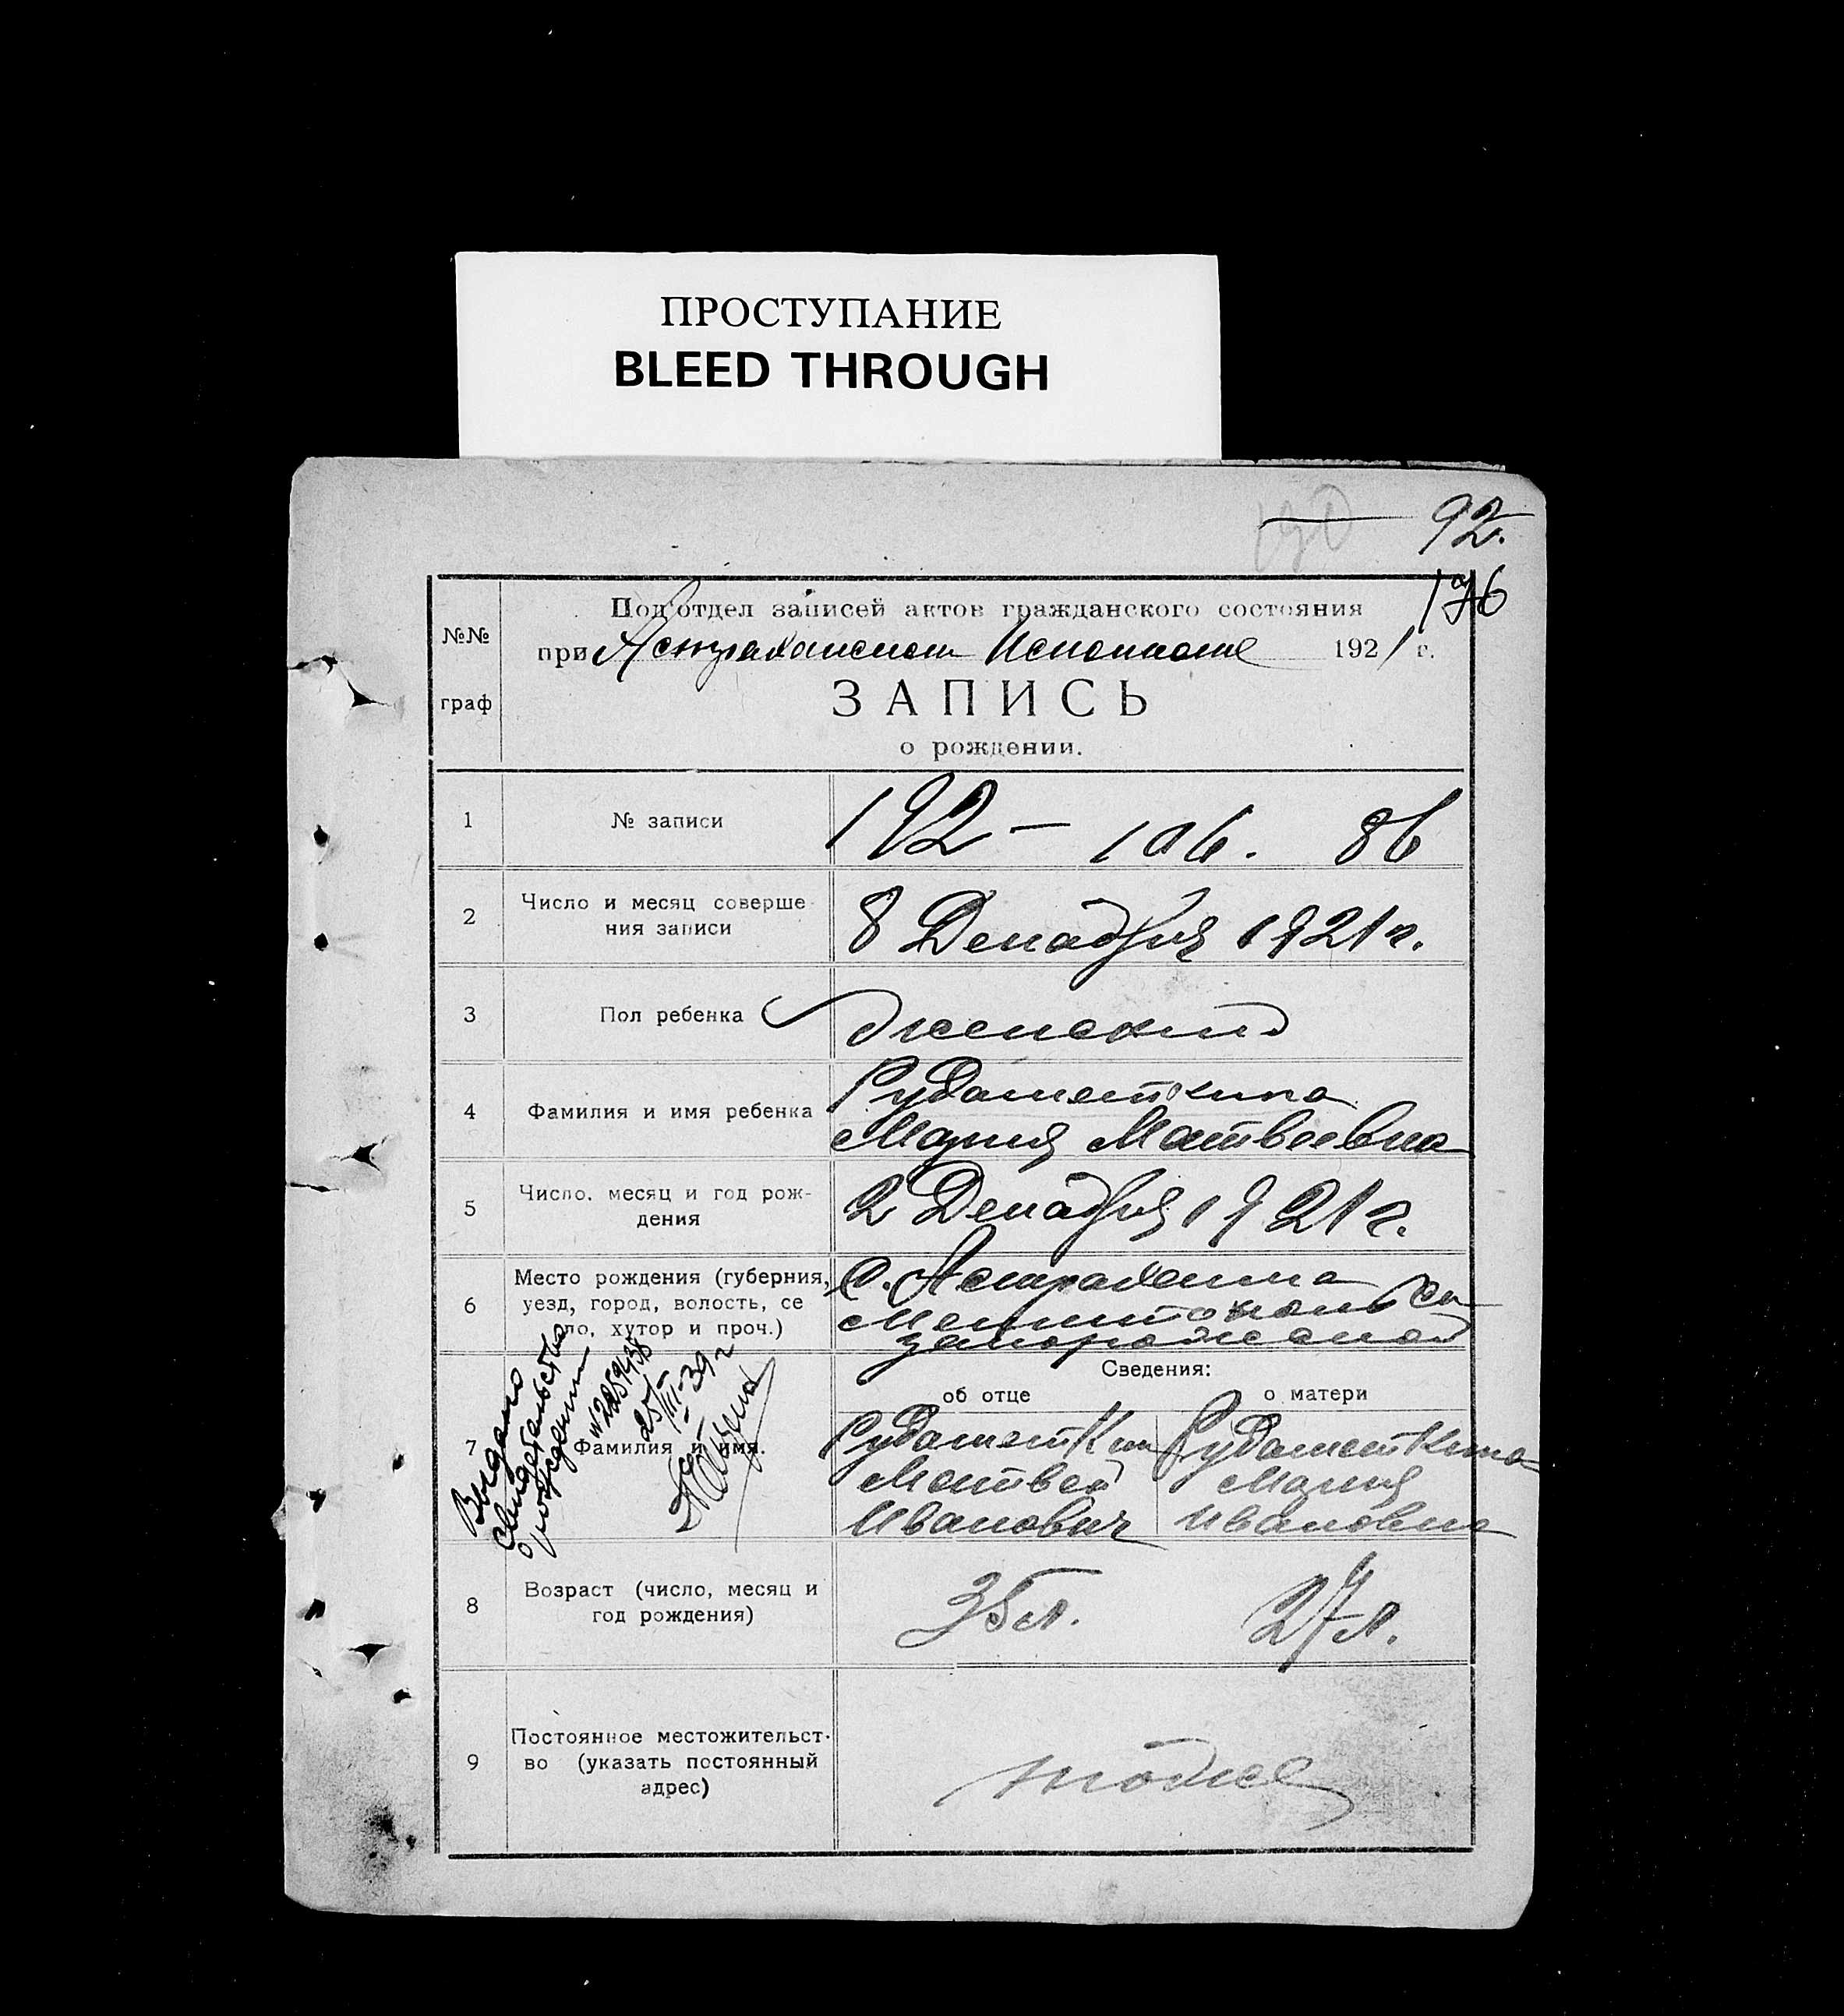 ПРОСТУПАНИЕ
BLEED THROUGH
190 92.
176
№№ граф
Подотдел записей актов гражданского состояния
при Астраханском Исполкоме 1921 г.
ЗАПИСЬ
о рождении.
1 № записи 192 — 106. 86
2 Число и месяц соверше-
ния записи
8 Декабря 1921 г.
3 Пол ребенка женский
4 Фамилия и имя ребенка
Рудаметкина
Мария Матвеевна
5 Число, месяц и год рож-
дения
2 Декабря 1921 г.
6 Место рождения (губерния,
уезд, город, волость, се
ло, хутор и проч.)
с. Астраханка
Мелитопольск
запорожской
Сведения:
об отце о матери
7 Фамилия и имя.
Рудаметкин
Матвей
Иванович
Рудаметкина
Мария
Ивановна
Выдано
свидетельство
о рождении
№ 2259438
25/III-39 г
8 Возраст (число, месяц и
год рождения)
35 л. 27 л.
9 Постоянное местожительст-
во (указать постоянный
адрес)
тоже